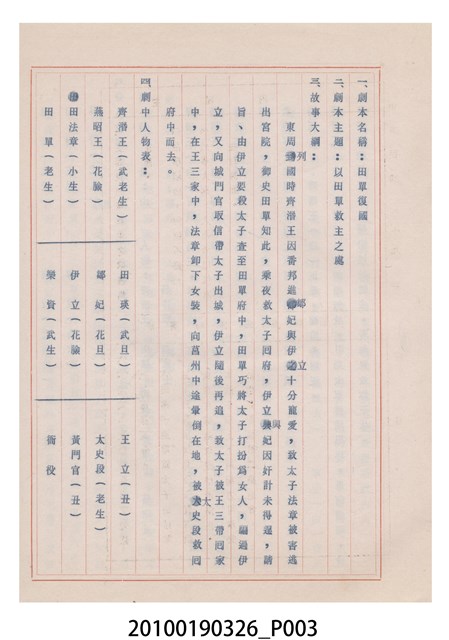 一、劇本名稱：田單復國
二、劇本主題：以田單救主之處
三、故事大綱：
東周列國時齊湣王因番邦進鄒妃與伊立十分寵愛，致太子法章被害逃
出宮院，御史田單知此，乘夜救太子回府，伊立與妃因奸計未得逞，請
旨、由伊立要殺太子查至田單府中，田單巧將太子打扮為女人，瞞過伊
立，又向城門官取信帶太子出城，伊立隨後再追，致太子被王三帶回家
中，在王三家中，法章卸下女裝，向莒州中途暈倒在地，被太史段救回
府中而去。
四、劇中人物表：
齊湣王（武老生） 田瑛（武旦） 王立（丑）
燕昭王（花臉） 鄒妃（花旦） 太史段（老生）
田法章（小生） 伊立（花臉） 黃門官（丑）
田單（老生） 樂毅（武生） 衙役
20100190326_P003